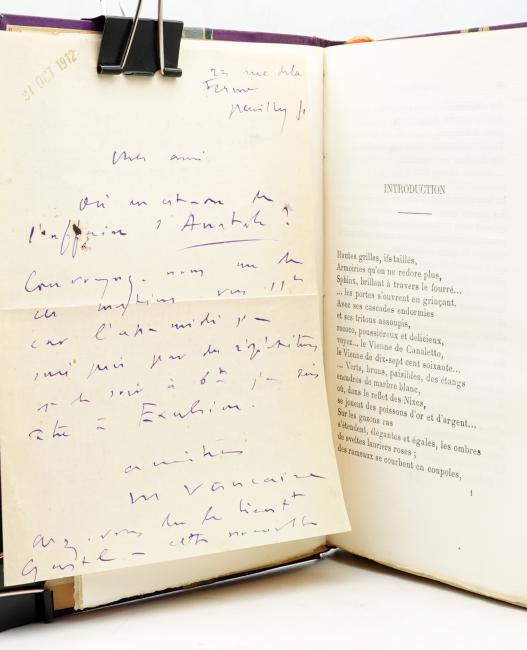 31 OCT 1912
23 rue de la
Ferme
Neuilly
Cher ami
Où en est-on de
l'affaire d'Anatole?
un de
ces matins vers 11h
car l'après midi je
suis pris par des répétitions
et le soir à 6h je
à Excelsior.
amitiés
M Vaucaire
vous
cette nouvelle
INTRODUCTION
Hautes grilles, ifs taillés,
Armoiries qu'on ne redore plus,
Sphinx, brillant à travers le fourré...
... les portes s'ouvrent en grinçant.
Avec ses cascades endormies
et ses tritons assoupis,
rococo, poussiéreux et délicieux,
voyez... le Vienne de Canaletto,
le Vienne de dix-sept cent soixante...
... Verts, bruns, paisibles, des étangs
encadrés de marbre blanc,
où, dans le reflet des Nixes,
se jouent des poissons d'or et d'argent...
Sur les gazons ras
s'étendent, élégantes et égales, les ombres
de sveltes lauriers roses ;
des rameaux se courbent en coupoles,
1